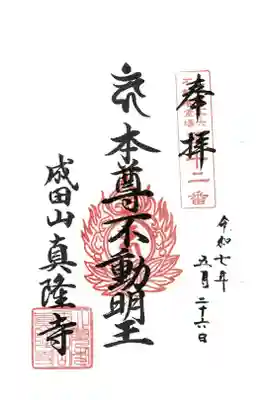 奉拝
二番
令和七年
五月二十六日
本尊不動明王
成田山真隆寺